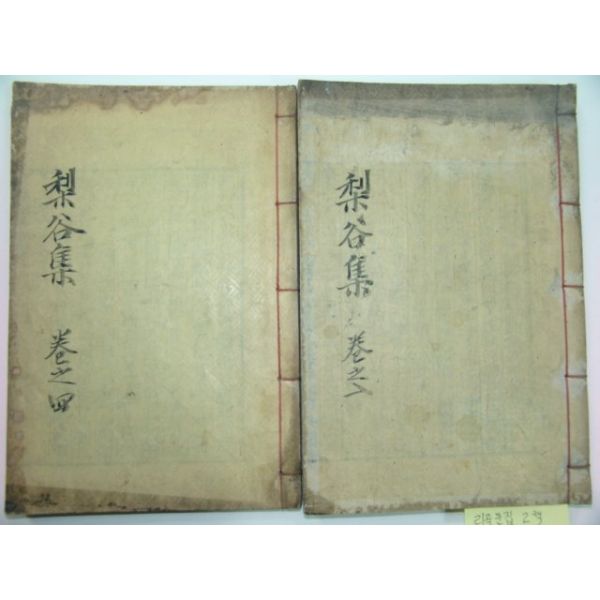 梨谷集 卷之四
梨谷集 卷之二
리곡문집 2책